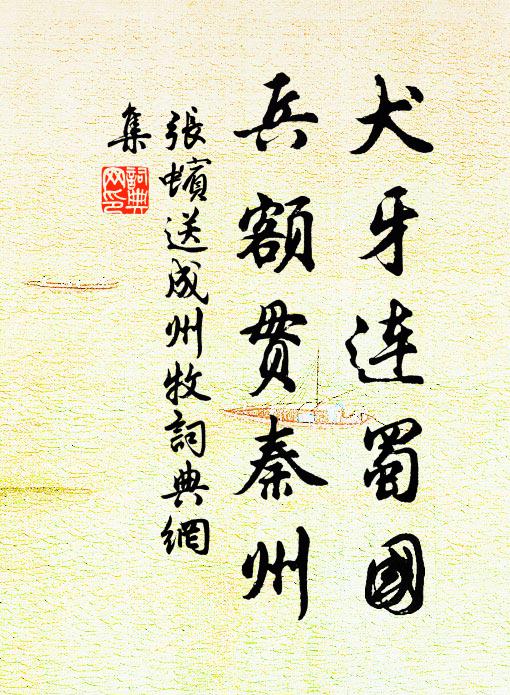 犬牙连蜀國
兵额贯秦州
張蠙送成州牧詞典網
集
詞典
网印